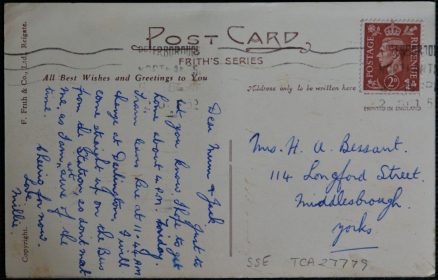 POST CARD
FRITH'S SERIES
All Best Wishes and Greetings to You
Address only to be written here
POSTAGE
REVENUE
2D
PRINTED IN ENGLAND
F. Frith & Co., Ltd. Reigate.
Copyright.
Dear Mum & Jack
Just to
let you know I hope to get
home about 4 P.M. Sunday.
Train leaves here at 11.44 AM
change at Darlington, I will
come straight up on the Bus
from the Station, so dont meet
me, as I am, of the
time. Cheerio for now.
Love.
Millie
Mrs. H. U. Bessant.
114 Longford Street.
Middlesbrough.
Yorks.
SSE TCA27779